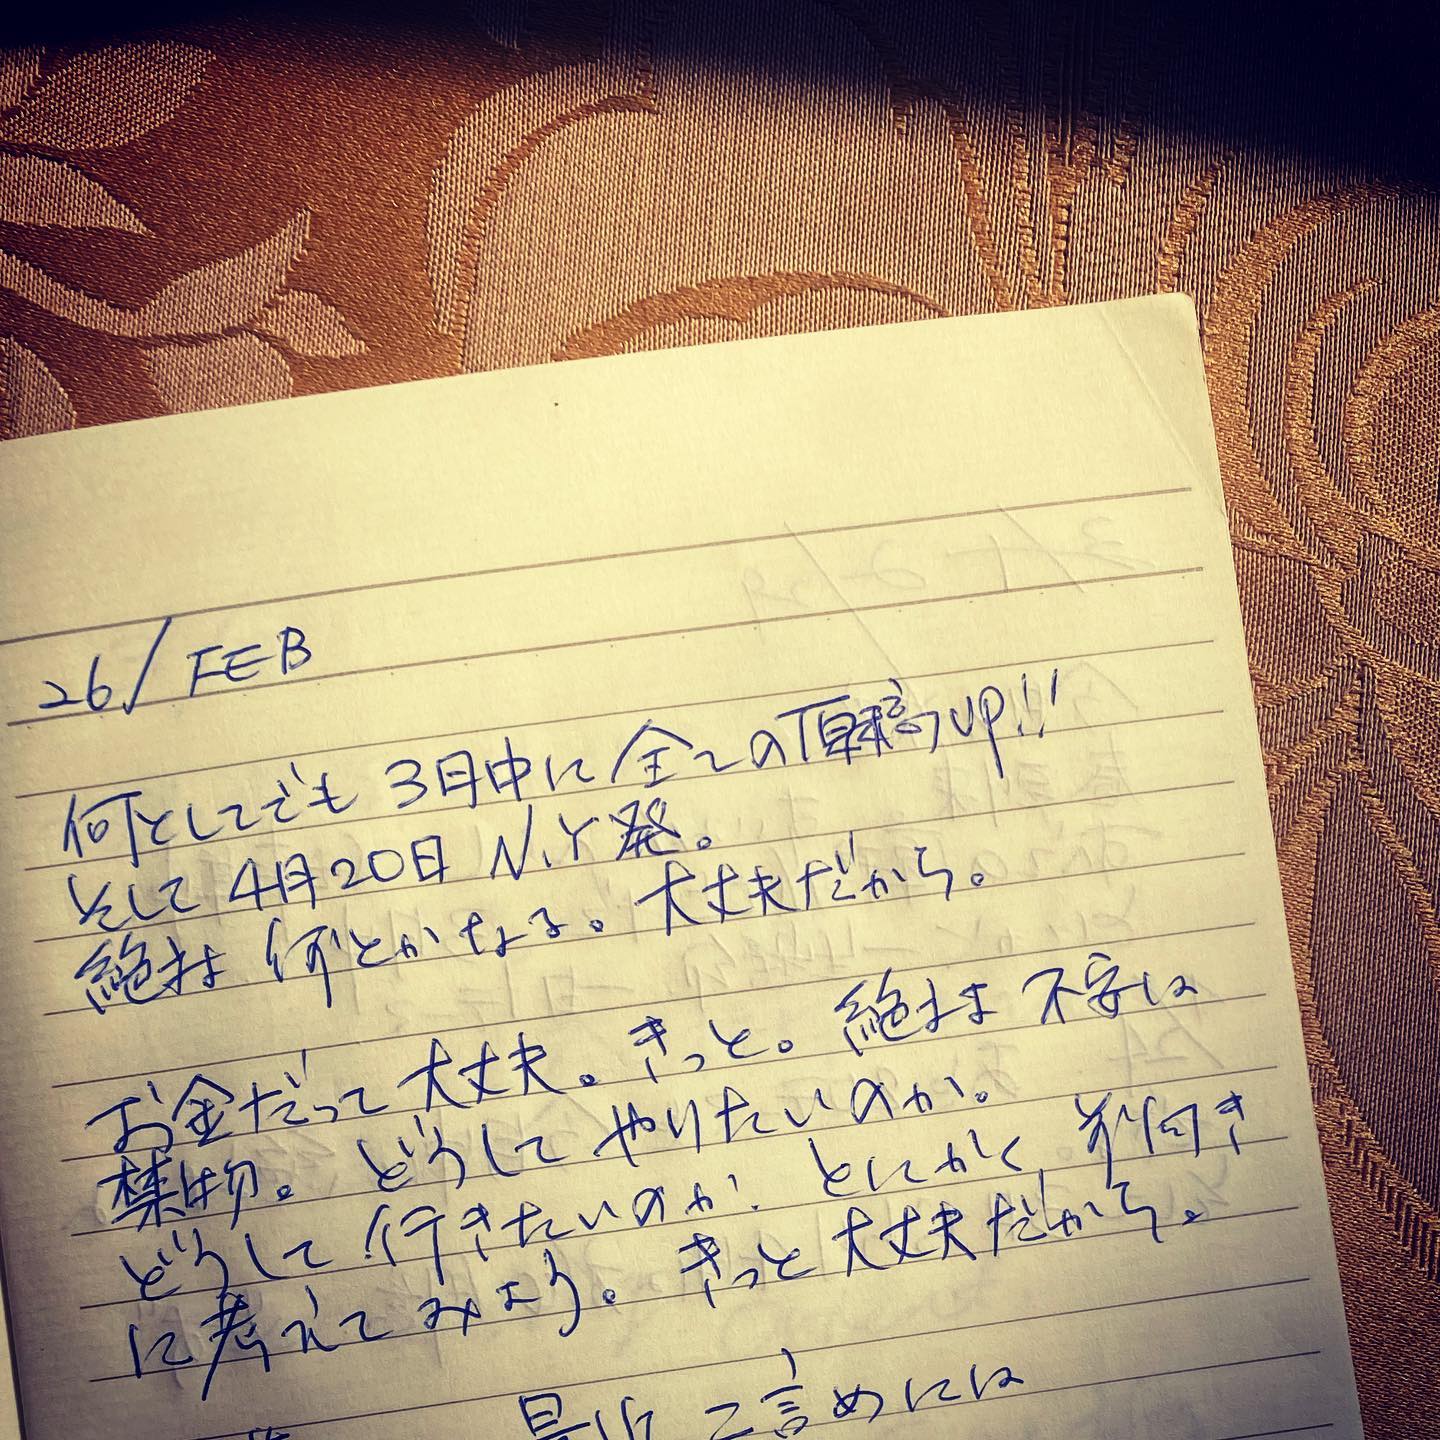 26/FEB
何としてでも3月中に全ての原稿UP!!
そして4月20日N.Y発。
絶対何とかなる。大丈夫だから。
お金だって大丈夫。きっと。絶対不安は
禁物。どうしてやりたいのか。
どうして行きたいのか。とにかく、前向き
に考えてみよう。きっと大丈夫だから。
最近二言めには